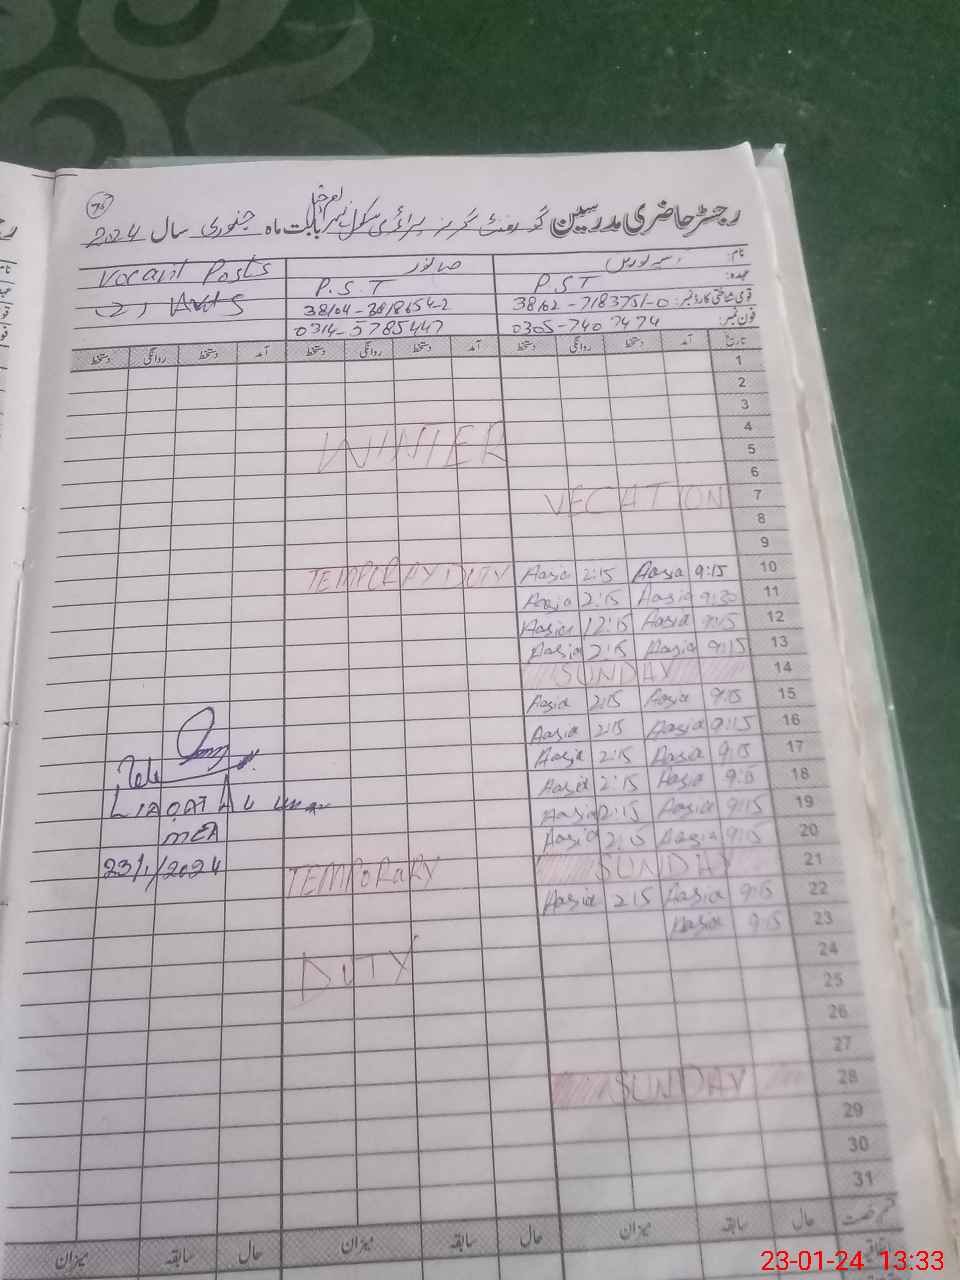 75
رجسٹر حاضری مدرسین گورنمنٹ گرلز پرائمری سکول بابت ماہ جنوری سال 2024
نام:
صا نور
Vacant Posts
عہدہ: P.S.T
P.S.T
قومی شناختی کارڈ نمبر: 38162-7183751-0
38104-3818654-2
فون نمبر: 0305-7407474
0314-5785447
تاریخ آمد دستخط روانگی دستخط آمد دستخط روانگی دستخط آمد دستخط روانگی دستخط
1
2
3
4
WINTER
5
6
VECATION 7
8
9
TEMPORAY DUTY Aasia 2:15 Aasia 9:15 10
Aasia 2:15 Aasia 9:20 11
Aasia 12:15 Aasia 9:15 12
Aasia 2:15 Aasia 9:15 13
SUNDAY 14
Aasia 2:15 Aasia 9:15 15
Aasia 2:15 Aasia 9:15 16
Aasia 2:15 Aasia 9:15 17
Aasia 2:15 Aasia 9:15 18
Aasia 2:15 Aasia 9:15 19
Aasia 2:15 Aasia 9:15 20
LIAQAT ALI
MEA
23/1/2024
TEMPORARY SUNDAY 21
Aasia 2:15 Aasia 9:15 22
Aasia 9:15 23
24
DUTY 25
26
27
SUNDAY 28
29
30
31
قسم رخصت حال سابقہ میزان حال سابقہ میزان حال سابقہ میزان
اتفاقیہ
23-01-24 13:33